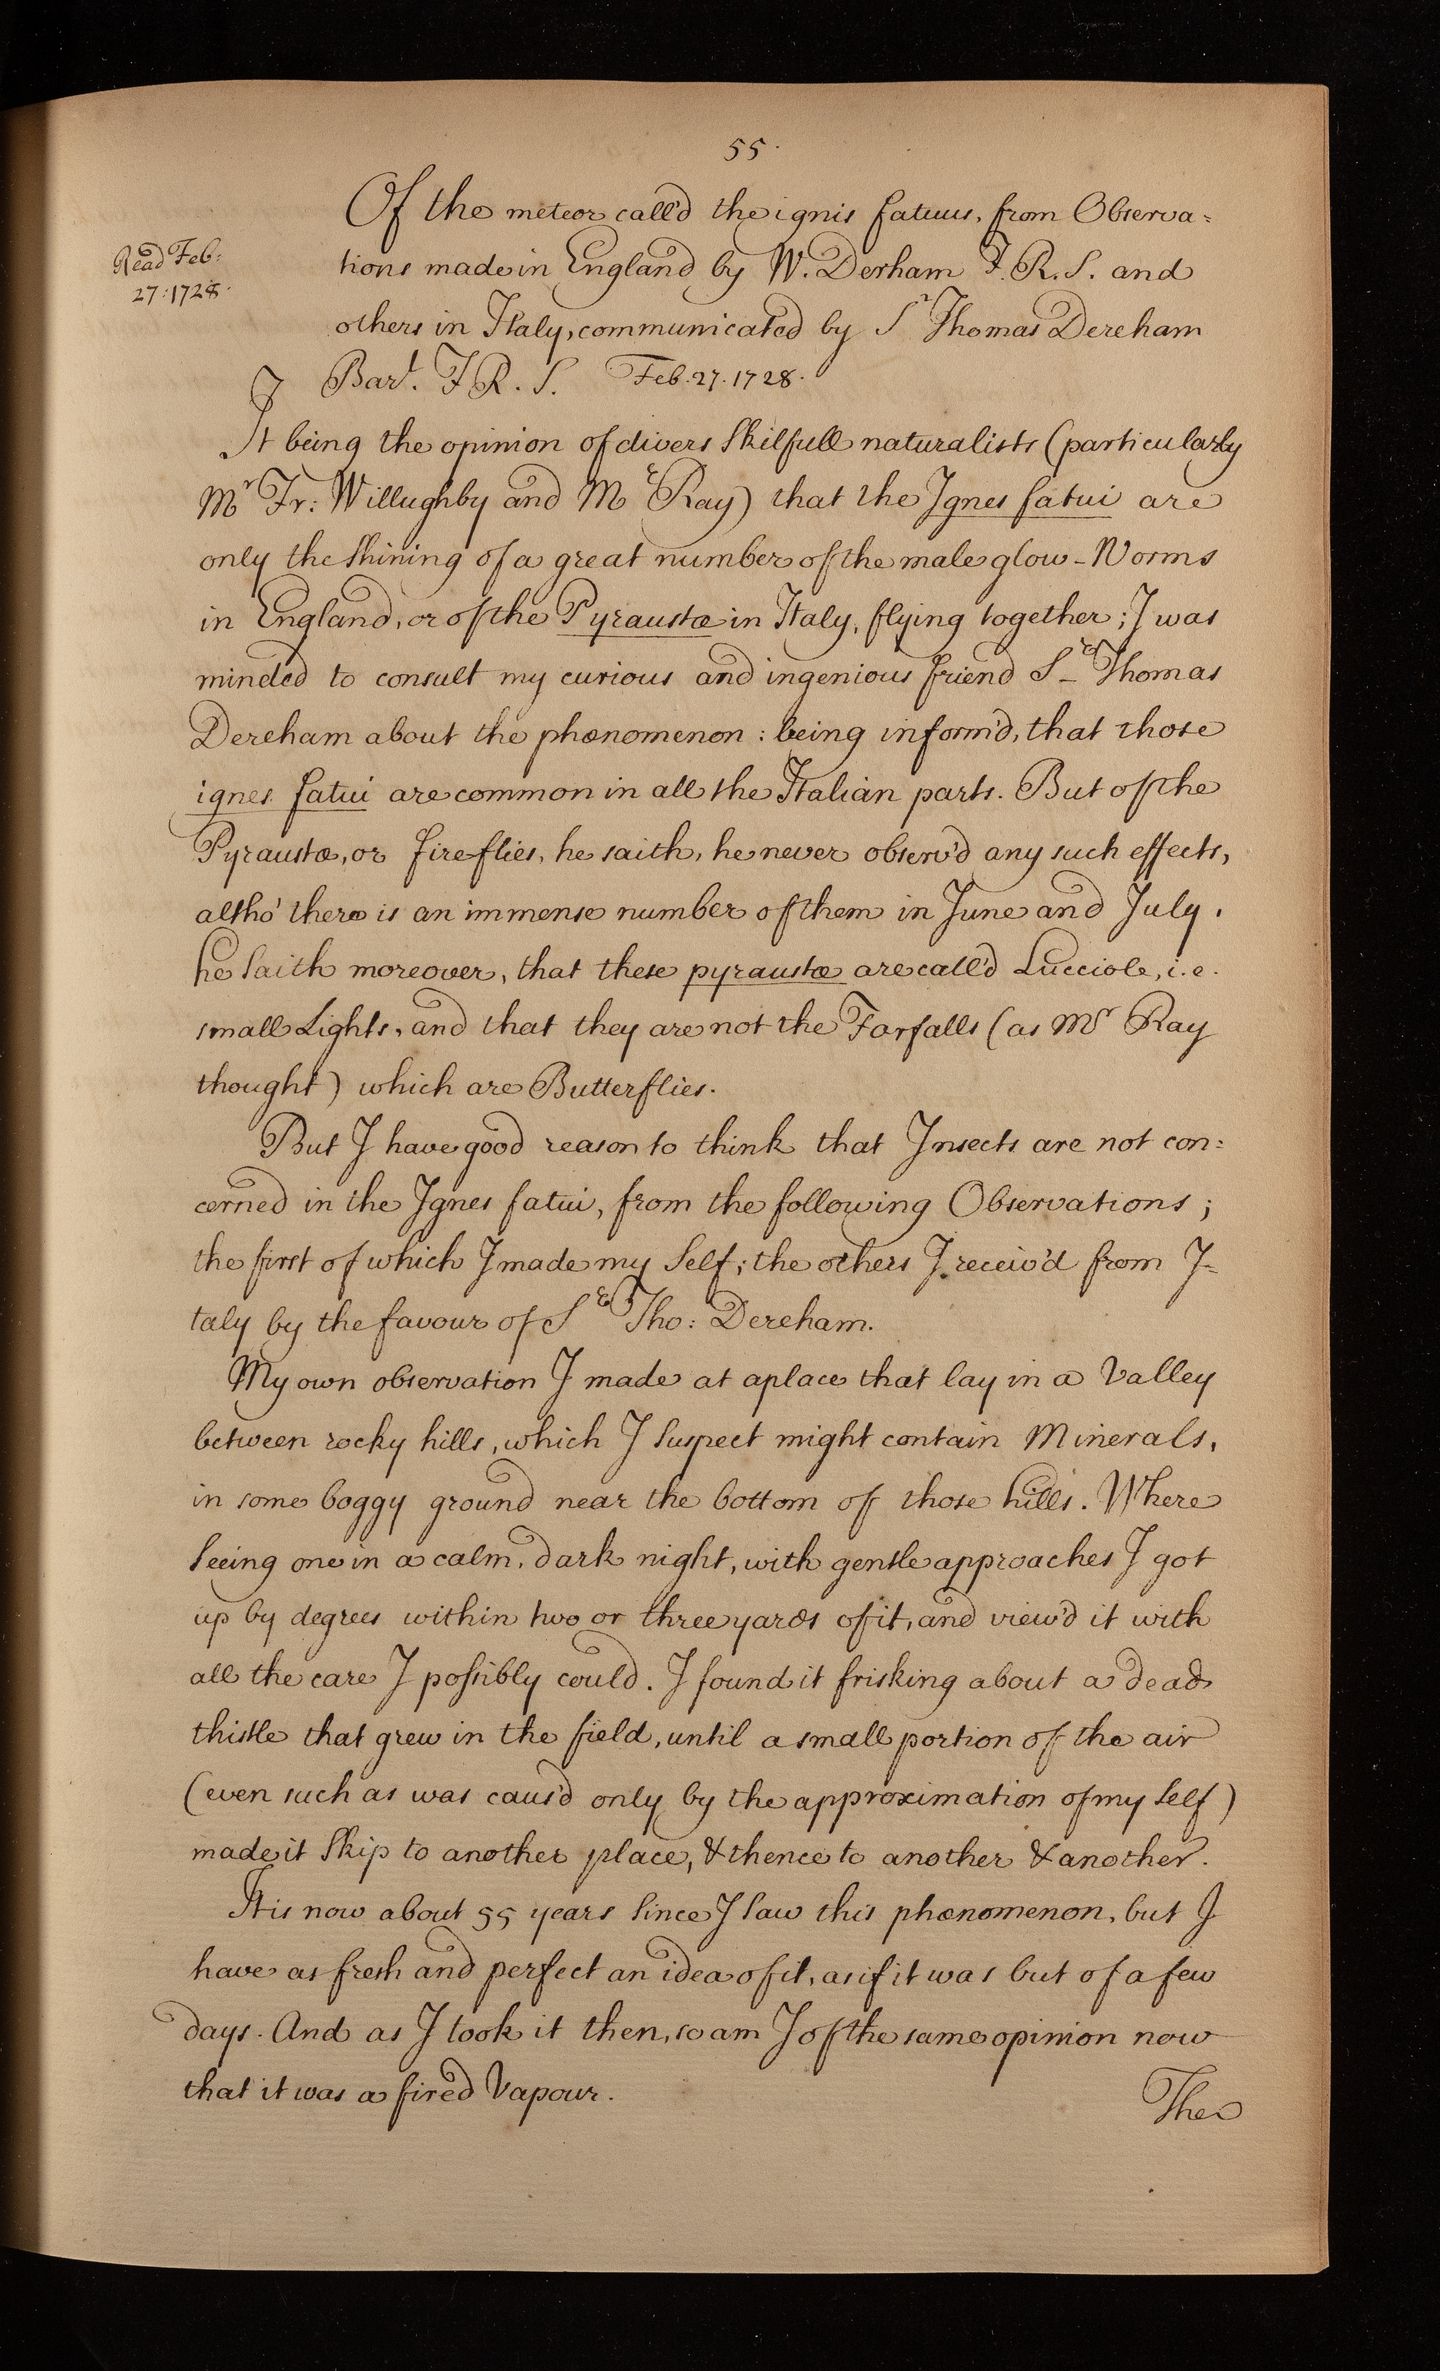 55.
Of the meteor call'd the ignis fatuus, from Observa=
Read Feb:
27: 1728.
tions made in England by W. Derham F. R. S. and
others in Italy, communicated by Sr Thomas Dereham
Bart. F R. S. Feb. 27. 1728.
It being the opinion of divers skilfull naturalists (particularly
Mr Fr: Willughby and Mr Ray) that the Ignes fatui are
only the shining of a great number of the male glow-Worms
in England, or of the Pyraustæ in Italy, flying together; I was
minded to consult my curious and ingenious friend Sr Thomas
Dereham about the phœnomenon: being inform'd, that those
ignes fatui are common in all the Italian parts. But of the
Pyraustæ, or fire flies, he saith, he never observ'd any such effects,
altho' there is an immense number of them in June and July.
he saith moreover, that these pyraustæ are call'd Lucciole, i.e.
small Lights, and that they are not the Farfalls (as Mr Ray
thought) which are Butterflies.
But I have good reason to think that Insects are not con=
cerned in the Ignes fatui, from the following Observations;
the first of which I made my self; the others I receiv'd from I=
taly by the favour of Sr Tho: Dereham.
My own observation I made at a place that lay in a Valley
between rocky hills, which I suspect might contain Minerals,
in some boggy ground near the bottom of those hills. Where
seeing one in a calm, dark night, with gentle approaches I got
up by degrees within two or three yards of it, and view'd it with
all the care I possibly could. I found it frisking about a dead
thistle that grew in the field, until a small portion of the air
(even such as was caus'd only by the approximation of my self)
made it skip to another place, & thence to another & another.
It is now about 55 years since I saw this phœnomenon, but I
have as fresh and perfect an idea of it, as if it was but of a few
days. And as I took it then, so am I of the same opinion now
that it was a fired Vapour.
The